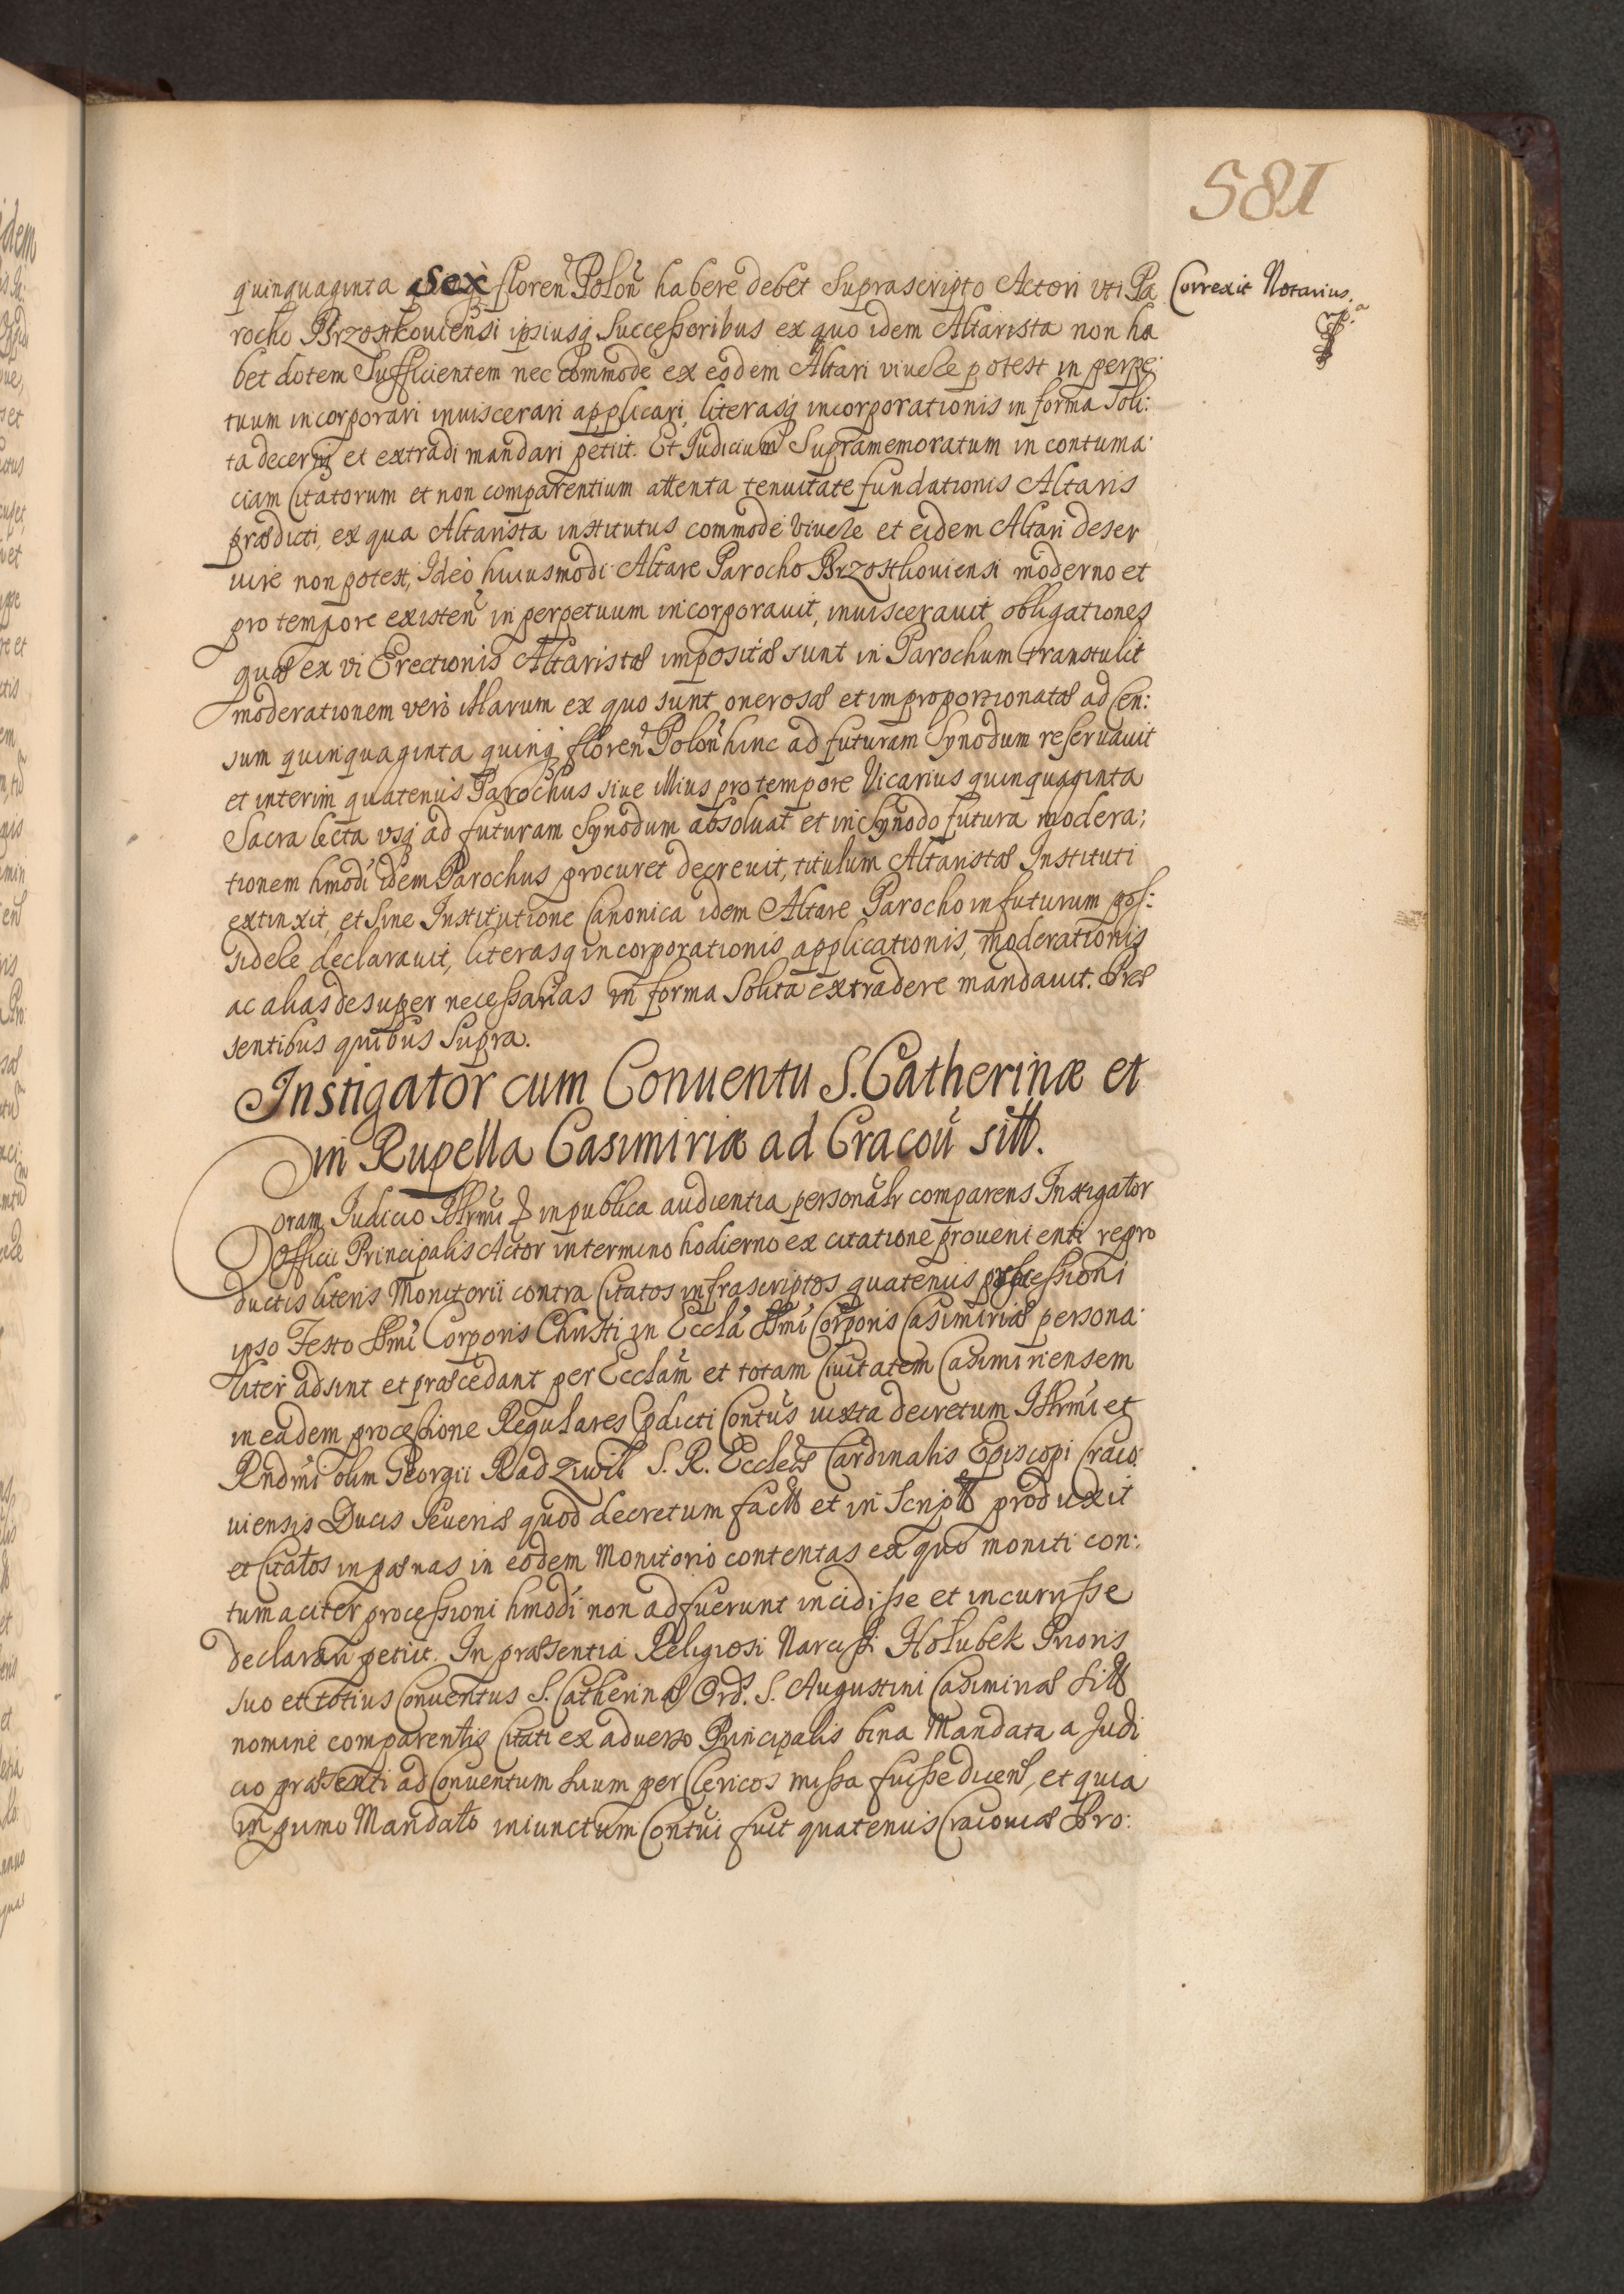 581
quinquaginta Sex floren Polon habere debet Suprascripto Actori uti Pa
Correxit Notarius.
rocho Brzostkouiensi ipsiusq Successoribus ex quo idem Altarista non ha
bet dotem Sufficientem nec commode ex eodem Altari viuere potest in perpe:
tuum incorporari inuiscerari applicari, literasq incorporationis in forma Soli:
ta decerni et extradi mandari petiit. Et Judicium Supramemoratum in contuma:
ciam Citatorum et non comparentium attenta tenuitate fundationis Altaris
prædicti, ex qua Altarista institutus commode viuere et eidem Altari deser
uire non potest, Ideò huiusmodi Altare Parocho Brzostkouiensi moderno et
pro tempore existen in perpetuum incorporauit, inuiscerauit obligationes
quæ ex vi Erectionis Altaristæ impositæ sunt in Parochum transtulit
moderationem verò illarum ex quo sunt onerosæ et improportionatæ ad Cen:
sum quinquaginta quinq floren Polon hinc ad futuram Synodum reseruauit
et interim quatenus Parochus siue illius pro tempore Vicarius quinquaginta
Sacra lecta usq ad futuram Synodum absoluat et in Synodo futura modera:
tionem hmodi idem Parochus procuret decreuit, titulum Altaristæ Instituti
extinxit, et Sine Institutione Canonica idem Altare Parocho in futurum pos:
sidere declarauit, literasq incorporationis, applicationis, moderationis
ac alias desuper necessarias in forma Solita extradere mandauit. Præ
sentibus quibus Supra.
Instigator cum Conuentu S. Catherinæ et
in Rupella Casimiriæ ad Cracou sitt.
Coram Judicio Illrmi in publica audientia personalr comparens Instigator
Officii Principalis Actor in termino hodierno ex citatione prouenienti repro
ductis literis Monitorii contra Citatos infrascriptos quatenus processioni
ipso Festo SSmi Corporis Christi in Eccla SSmi Corporis Casimiriæ persona:
liter adsint et præcedant per Ecclam et totam Ciuitatem Casimiriensem
in eadem processione Regulares pdicti Contus iuxta decretum Illrmi et
Rndmi olim Georgii Radziwil S. R. Eccleæ Cardinalis Episcopi Craco:
uiensis Ducis Seueriæ quod decretum factt et in Scriptt produxit
et Citatos in pænas in eodem Monitorio contentas ex quo moniti con:
tumaciter processioni hmodi non adfuerunt incidisse et incurrisse
declarari petiit. In præsentia Religiosi Narcissi Holubek Prioris
suo et totius Conuentus S. Catherinæ Ord. S. Augustini Casimiriæ Sitt
nomine comparentis Citati ex aduerso Principalis bina Mandata a Judi
cio præsenti ad Conuentum Suum per Clericos missa fuisse dicens, et quia
in primo Mandato iniunctum Contui fuit quatenus Cracouiæ Pro: